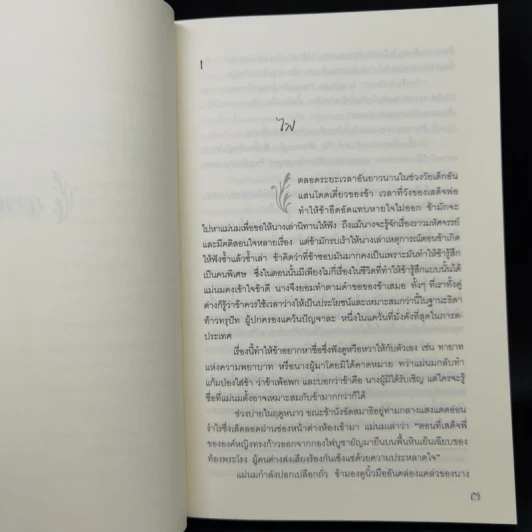 1
ไฟ
ตลอดระยะเวลาอันยาวนานในช่วงวัยเด็กอัน
แสนโดดเดี่ยวของข้า เวลาที่วังของเสด็จพ่อ
ทำให้ข้าอึดอัดแทบหายใจไม่ออก ข้ามักจะ
ไปหาแม่นมเพื่อขอให้นางเล่านิทานให้ฟัง ถึงแม้นางจะรู้จักเรื่องราวมหัศจรรย์
และมีคติสอนใจหลายเรื่อง แต่ข้ามักรบเร้าให้นางเล่าเหตุการณ์ตอนข้าเกิด
ให้ฟังซ้ำแล้วซ้ำเล่า ข้าคิดว่าที่ข้าชอบมันมากคงเป็นเพราะมันทำให้ข้ารู้สึก
เป็นคนพิเศษ ซึ่งในตอนนั้นมีเพียงไม่กี่เรื่องในชีวิตที่ทำให้ข้ารู้สึกแบบนั้นได้
แม่นมคงเข้าใจข้าดี นางจึงยอมทำตามคำขอของข้าเสมอ ทั้งๆ ที่เราทั้งคู่
ต่างก็รู้ว่าข้าควรใช้เวลาว่างให้เป็นประโยชน์และเหมาะสมกว่านี้ในฐานะธิดา
ท้าวทรุปัท ผู้ปกครองแคว้นปัญจาละ หนึ่งในแคว้นที่มั่งคั่งที่สุดในภารต-
ประเทศ
เรื่องนี้ทำให้ข้าอยากหาชื่อซึ่งฟังดูหวือหวาให้กับตัวเอง เช่น ทายาท
แห่งความพยาบาท หรือนางผู้มาโดยมิได้คาดหมาย ทว่าแม่นมกลับทำ
แก้มป่องใส่ข้า ว่าข้าเพ้อพก และบอกว่าข้าคือ นางผู้มิได้รับเชิญ แต่ใครจะรู้
ชื่อที่แม่นมตั้งอาจเหมาะสมกับข้ามากกว่าก็ได้
ช่วงบ่ายในฤดูหนาว ขณะข้านั่งขัดสมาธิอยู่ท่ามกลางแสงแดดอ่อน
รำไรซึ่งเล็ดลอดผ่านช่องหน้าต่างห้องเข้ามา แม่นมเล่าว่า "ตอนที่เสด็จพี่
ขององค์หญิงทรงก้าวออกจากกองไฟบูชายัญมายืนบนพื้นหินเย็นเฉียบของ
ท้องพระโรง ผู้คนต่างส่งเสียงร้องกันเซ็งแซ่ด้วยความประหลาดใจ"
แม่นมกำลังปอกเปลือกถั่ว ข้ามองดูนิ้วมืออันคล่องแคล่วของนาง